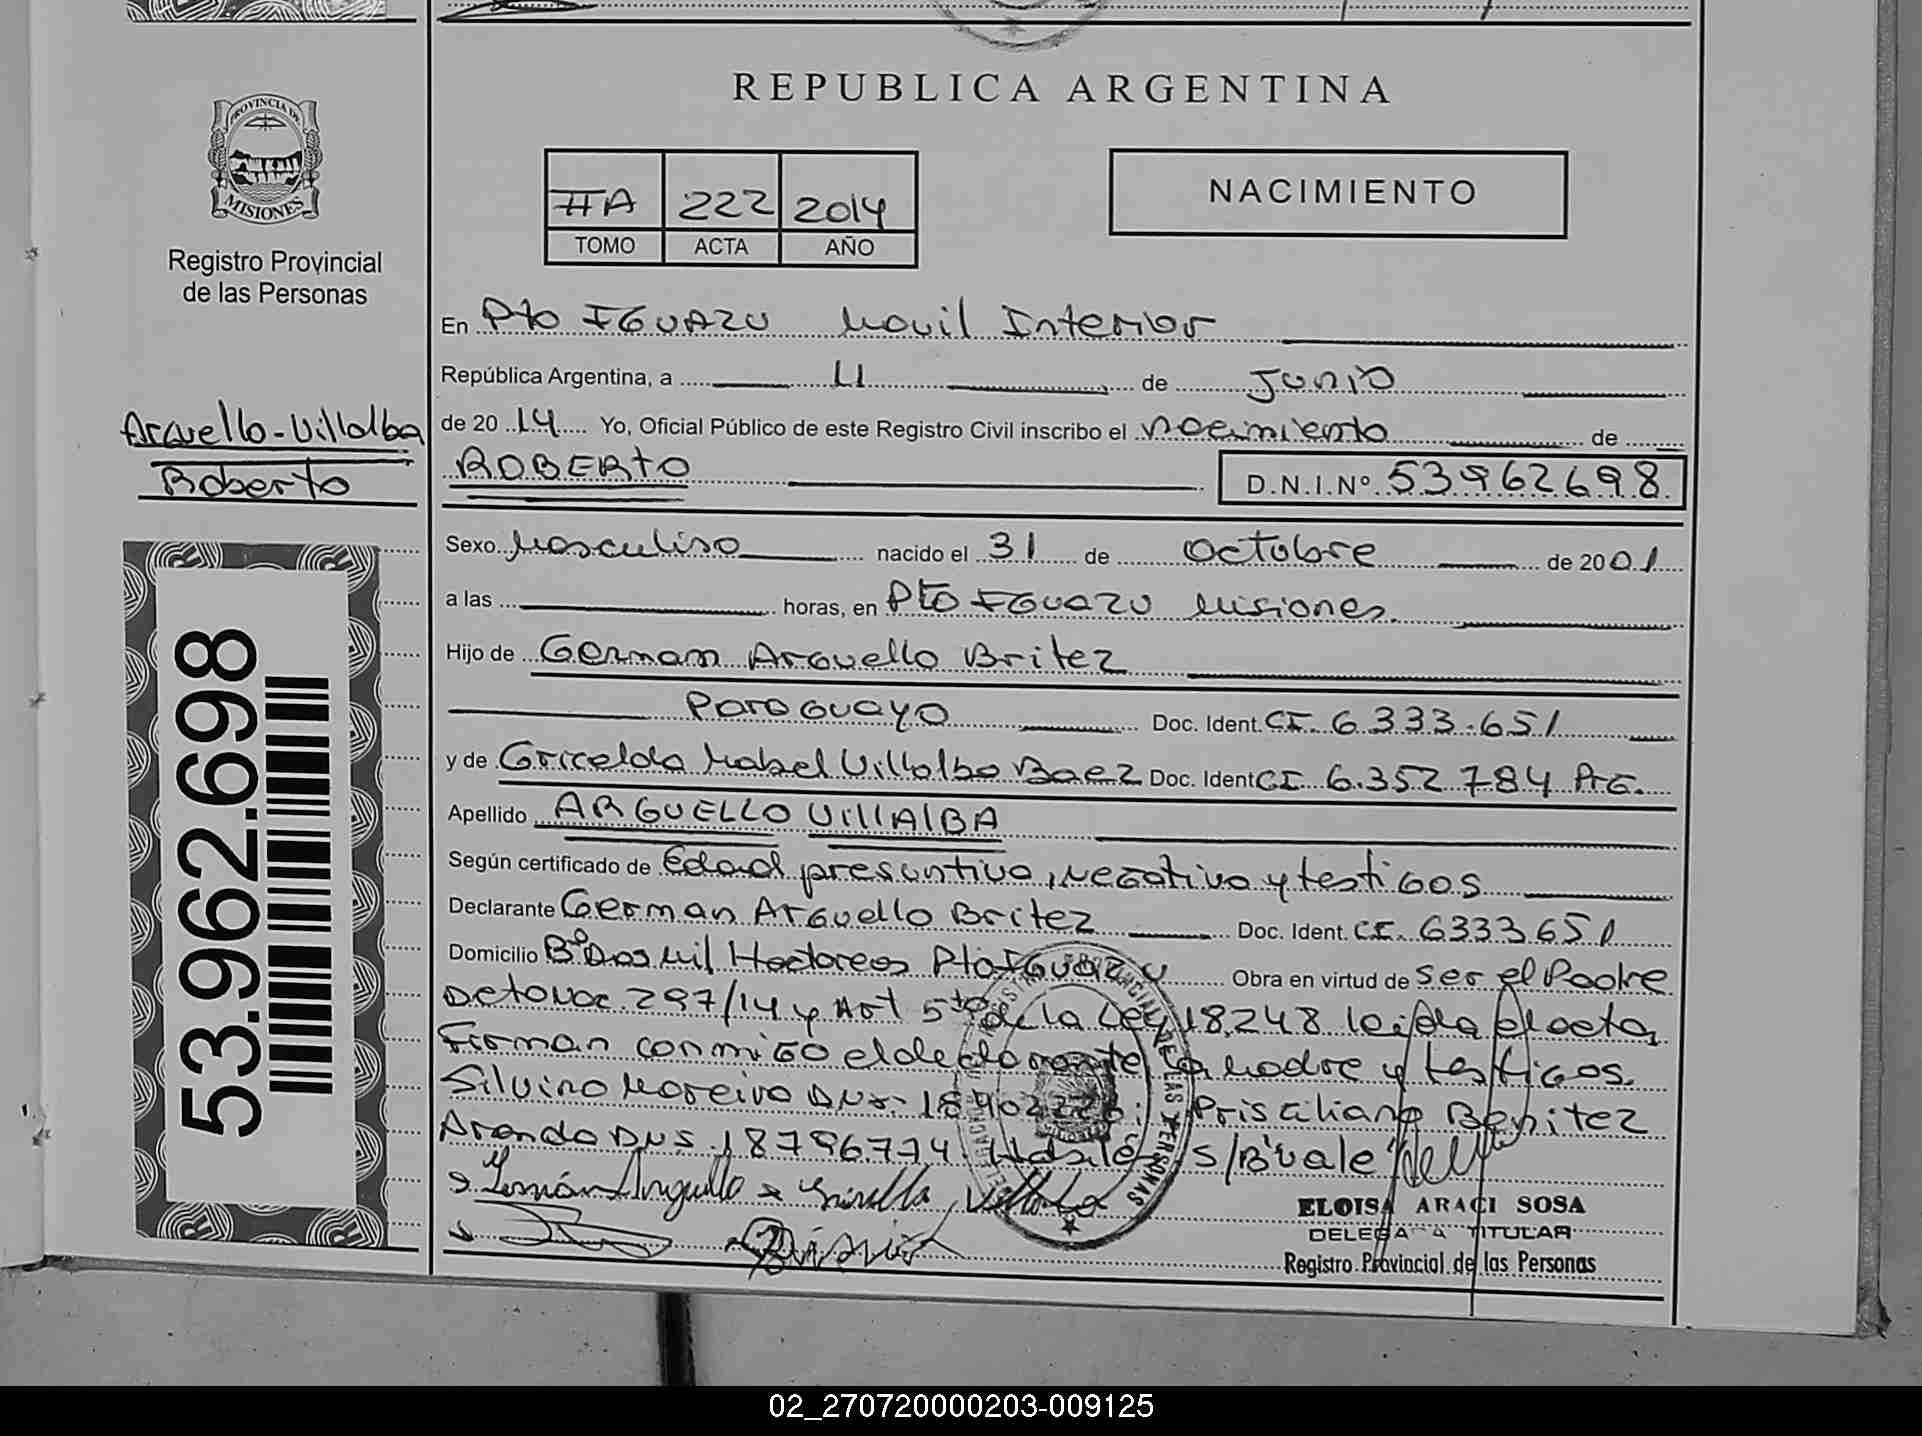 REPUBLICA ARGENTINA
PROVINCIA DE
MISIONES
Registro Provincial
de las Personas
IIA 222 2014
TOMO ACTA AÑO
NACIMIENTO
En Pto IGUAZU Movil Interior
República Argentina, a 11 de Junio
de 2014 Yo, Oficial Público de este Registro Civil inscribo el nacimiento de
Arguello-Villalba
Roberto
ROBERTO D.N.I.Nº 53962698
Sexo Masculino nacido el 31 de Octubre de 2001
a las horas, en Pto IGUAZU Misiones
Hijo de German Arguello Britez
Paraguayo Doc. Ident. CI. 6333.651
y de Gricelda Mabel Villalba Baez Doc. Ident CI 6.352 784 PG.
Apellido ARGUELLO VillAlBA
Según certificado de Edad presuntiva, negativo y testigos
Declarante German Arguello Britez Doc. Ident. CI. 6333651
Domicilio Bº Dos mil Hectareas Pto IGUAZU Obra en virtud de ser el Padre
297/14 y Art 5to de la Ley 18.248 leida el acta,
Firman conmigo el declarante la Madre y testigos.
Silvino Moreira Prisciliano Benitez
18796774 S/B Vale
German Arguello Villalba
53.962.698
ELOISA ARACI SOSA
DELEGADA TITULAR
Registro Provincial de las Personas
02_270720000203-009125